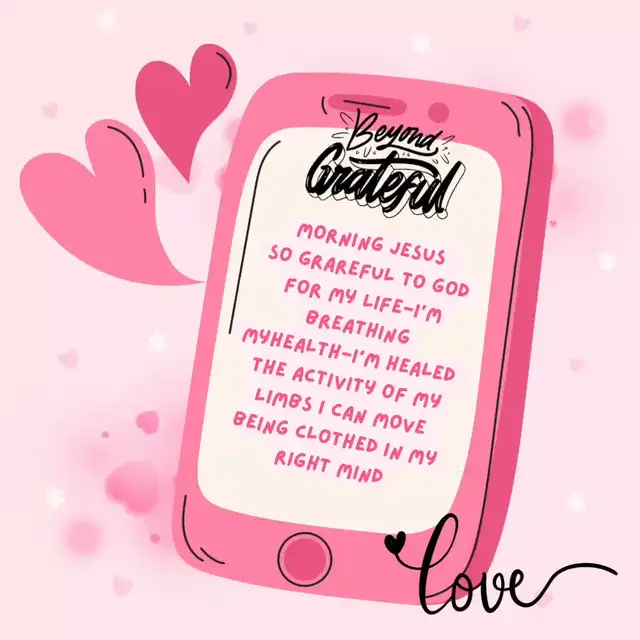 Beyond
Grateful
MORNING JESUS
SO GRAREFUL TO GOD
FOR MY LIFE-I'M
BREATHING
MYHEALTH-I'M HEALED
THE ACTIVITY OF MY
LIMBS I CAN MOVE
BEING CLOTHED IN MY
RIGHT MIND
love